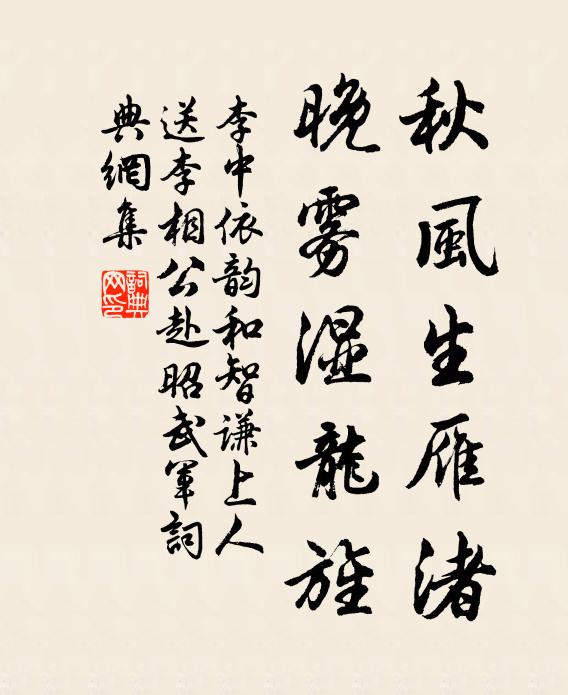 秋風生雁渚
晚雾湿龍旌
李中依韵和智謙上人
送李相公赴昭武軍詞
典網集
詞典網印